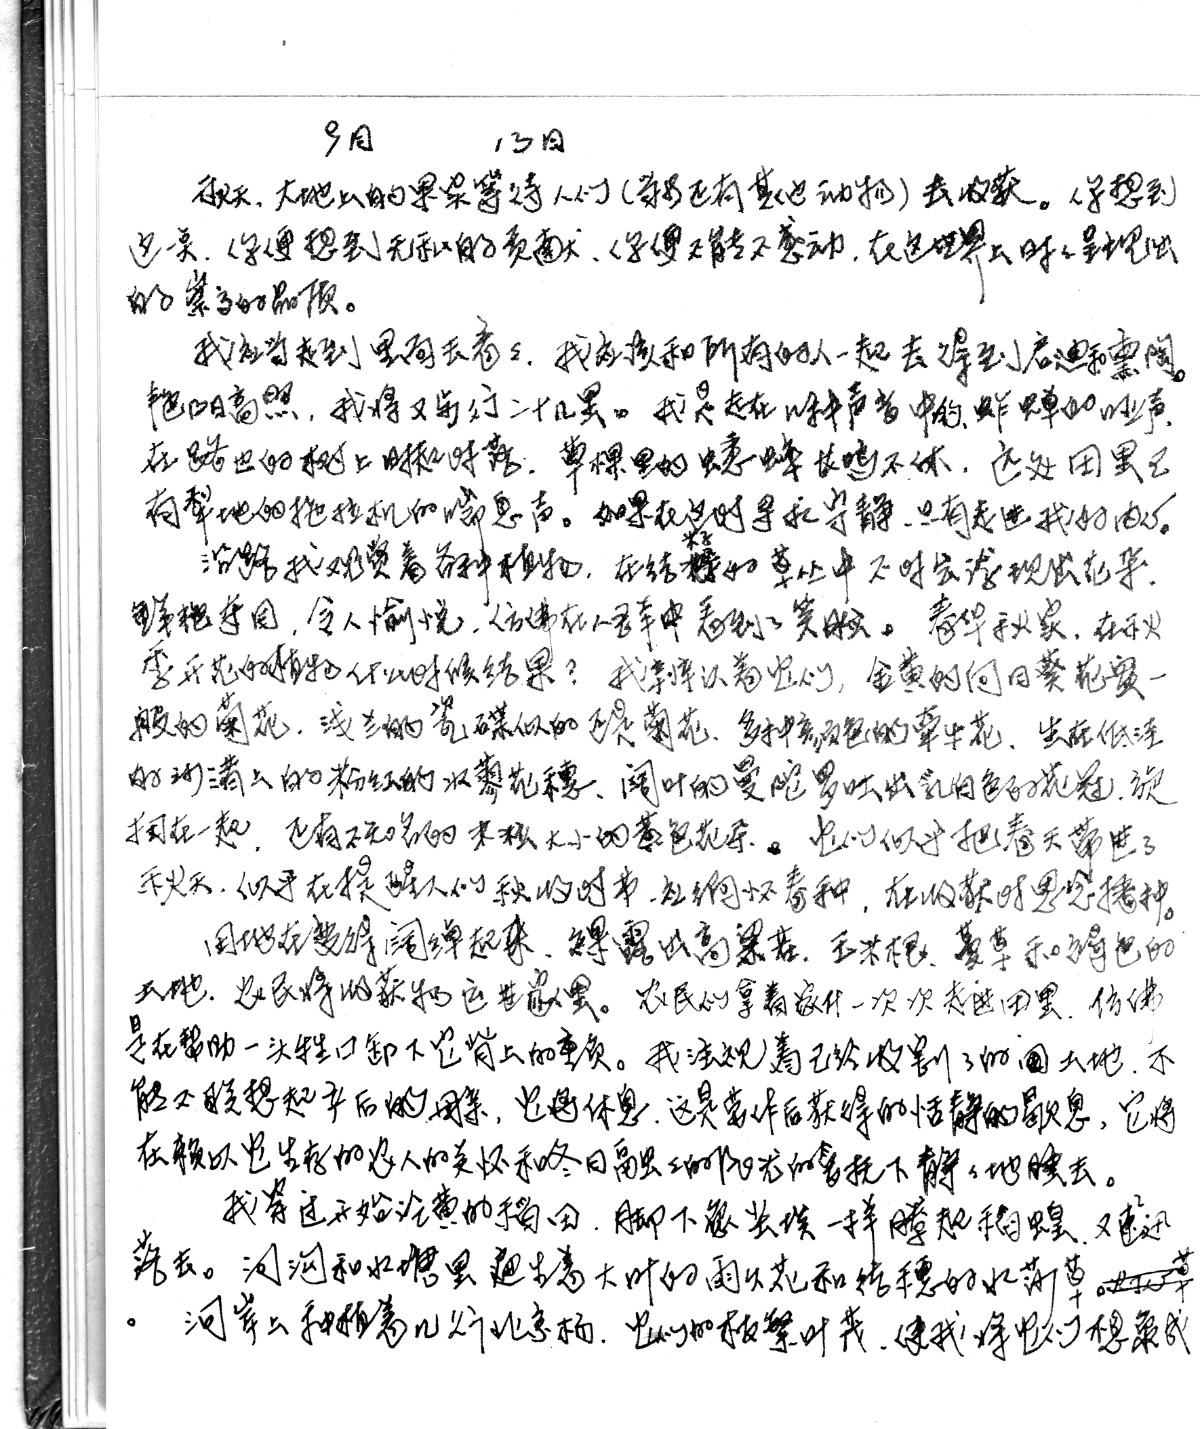 9月 13日
秋天，大地上的果实等待人们（当然还有其他动物）去收获。你想到
这一点，你便想到无私的贡献，你便不能不感动，在这世界上时时呈现出
的崇高的品质。
我应当走到里面去看看，我应该和所有的人一起去得到启迪和熏陶。
艳阳高照，我将又步行二十几里。我是走在几种声音中的，蚱蝉的叫声，
在路边的树上时起时落，草棵里的蟋蟀长鸣不休，远处田里已
有犁地的拖拉机的喘息声。如果在这时寻求宁静，只有走进我的内心。
沿路我观赏着各种植物，在结籽的草丛中不时会发现出花朵，
鲜艳夺目，令人愉悦，仿佛在人群中看到了笑脸。春华秋实，在秋
季开花的植物什么时候结果？我辨认着它们，金黄的向日葵花盘一
般的菊花，浅兰的瓷碟似的 菊花，多种颜色的牵牛花，生在低洼
的河渚上的粉红的水蓼花穗，阔叶的曼陀罗吐出乳白色的花冠，旋
扭在一起，还有不知名的米粒大小的黄色花朵。它们似乎把春天带进了
秋天，似乎在提醒人们秋收时节，应缅怀春种，在收获时思念播种。
田地在变得阔绰起来，裸露出高粱茬，玉米根，蔓草和褐色的
土地，农民将收获物运进家里。农民们拿着家什一次次走进田里，仿佛
是在帮助一头牲口卸下它背上的重负。我注视着已经收割了的 土地，不
能不联想起产后的母亲，它将休息，这是劳作后获得的恬静的歇息，它将
在赖以它生存的农人的关怀和冬日融融的阳光的爱抚下静静地睡去。
我穿过开始泛黄的稻田，脚下像尘埃一样腾起稻蝗，又迅速
落去。河沟和水塘里 生着大叶的雨久花和结穗的水莎草。
。河岸上种植着几行北京杨，它们的枝繁叶茂，使我将它们想象成